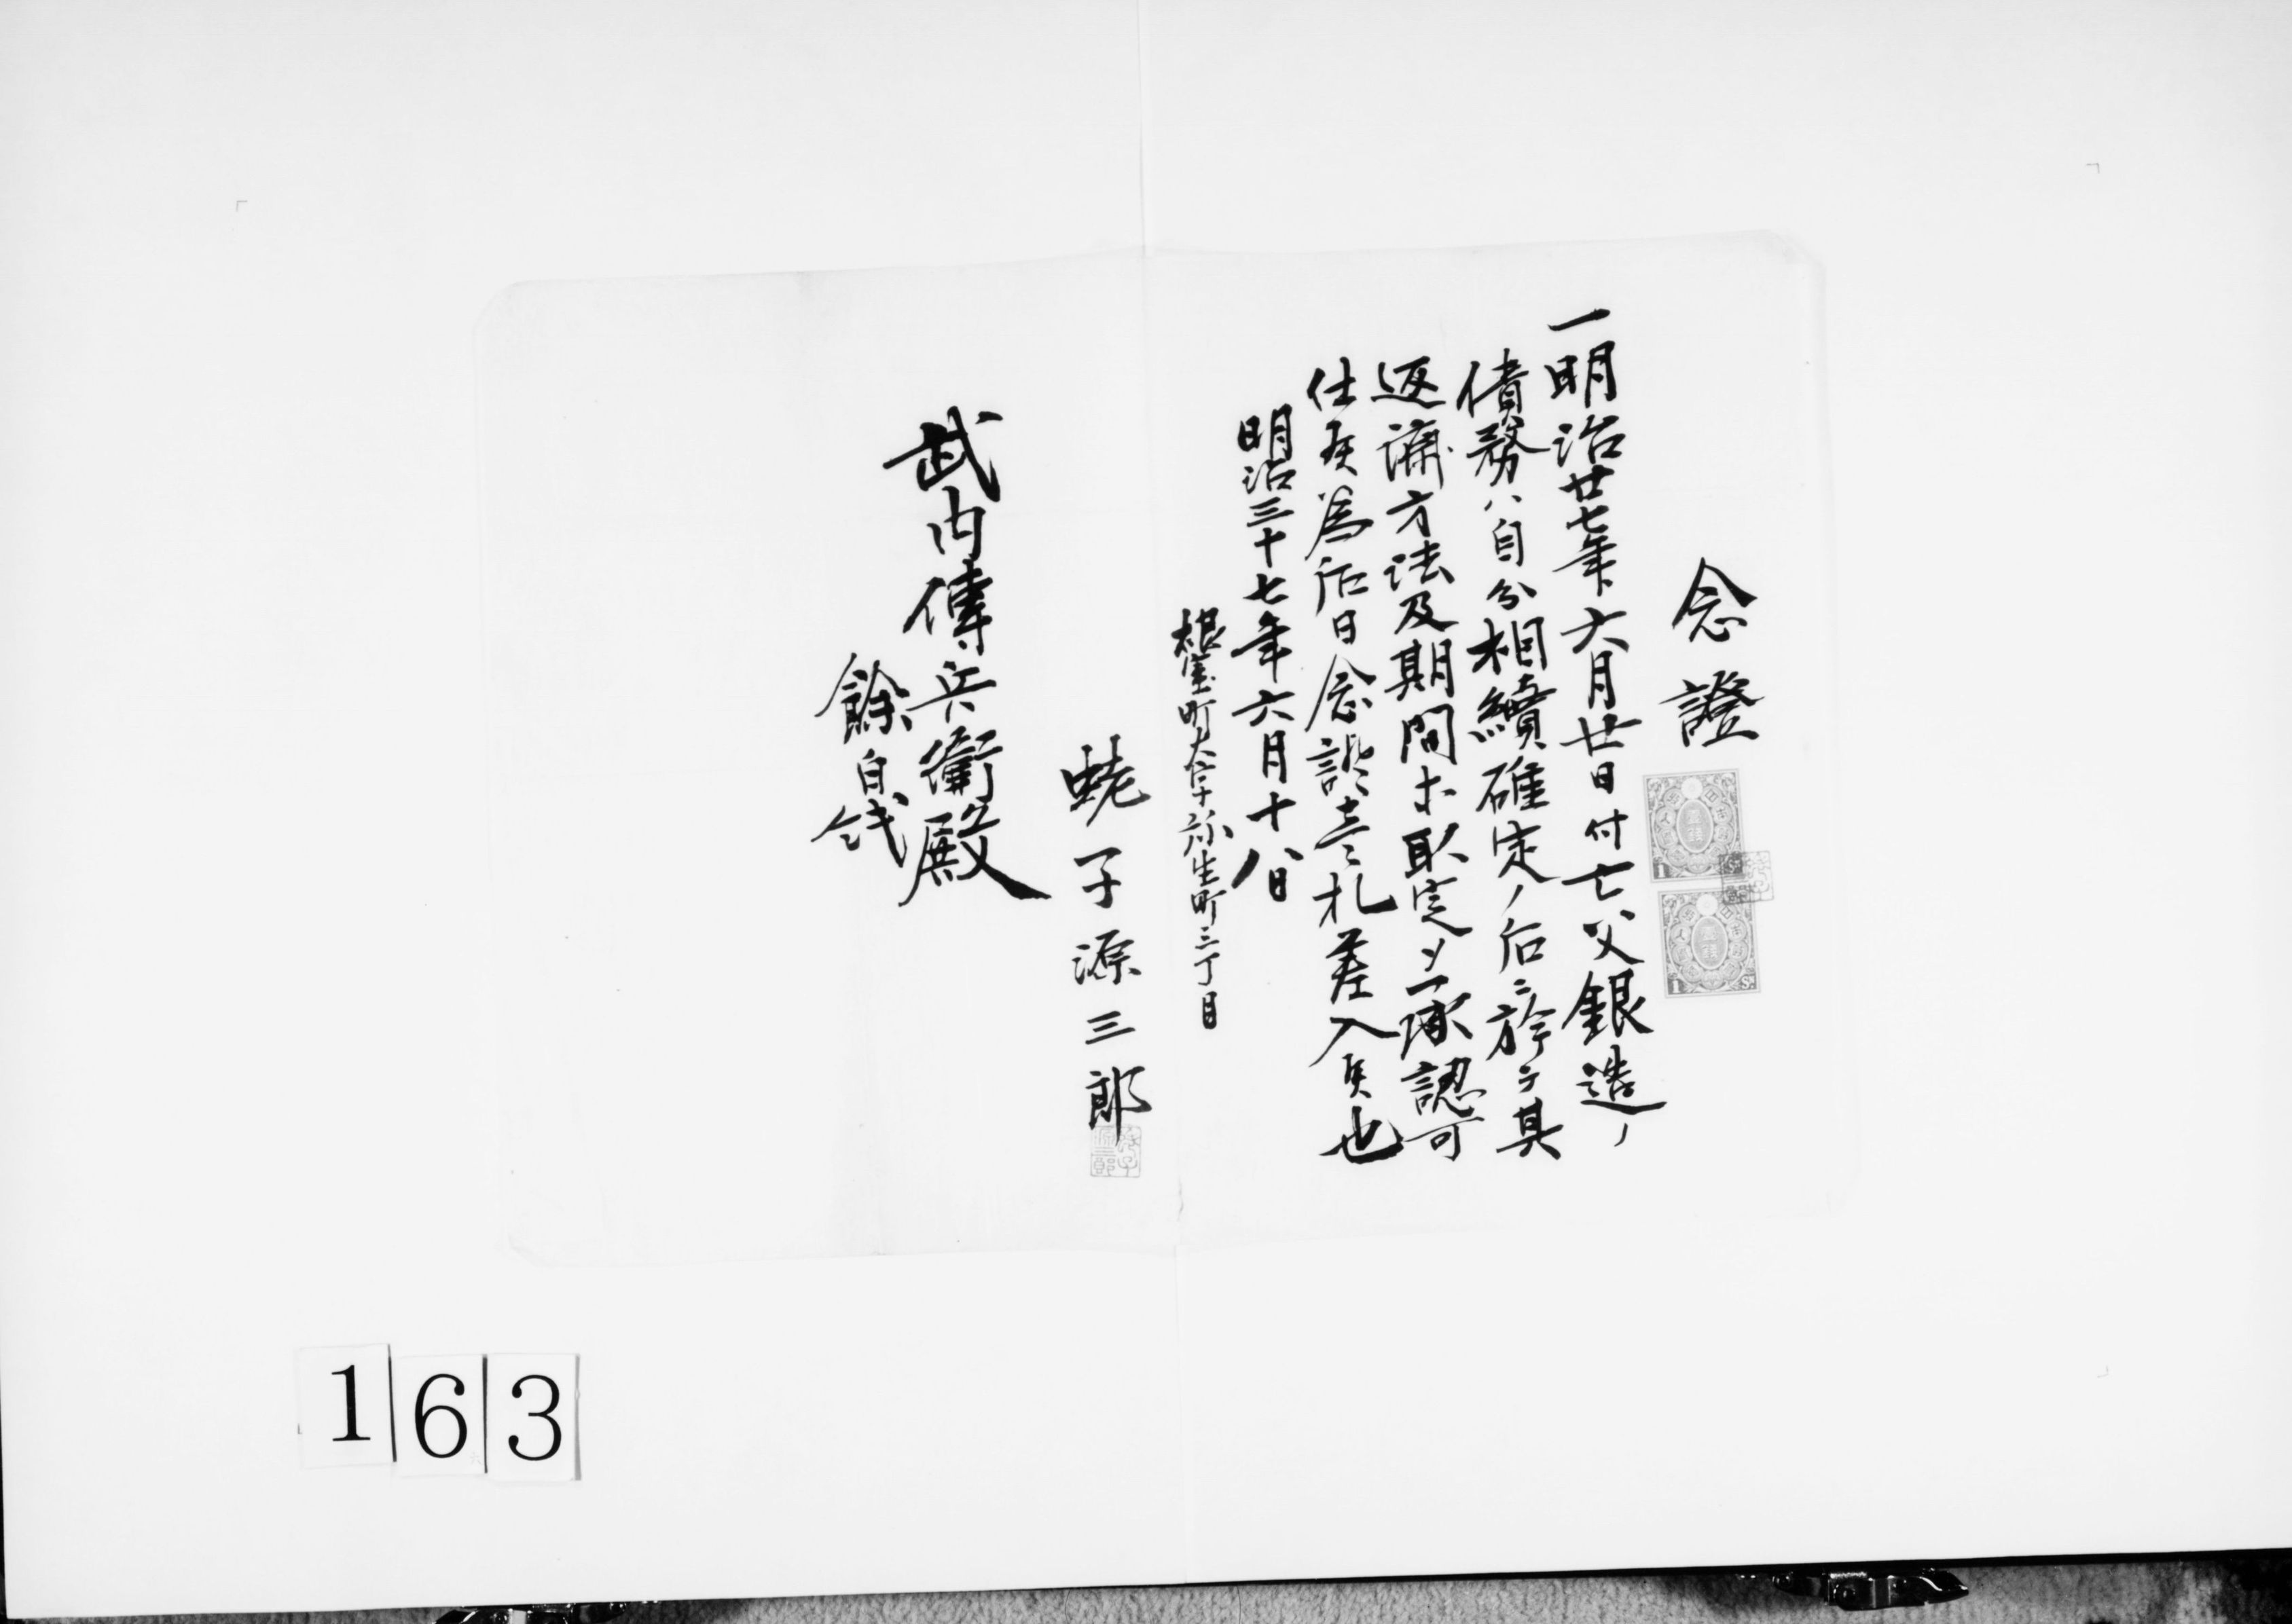 念證
一明治廿七年六月廿日付亡父銀造ノ
債務ハ自分相續確定ノ后ニ於テ其
返濟方法及期間ホ取定メ承認可
仕候為后日念證壹札差入置也
明治三十七年六月十八日
根室町大字弥生町三丁目
蛯子源三郎
武内傳兵衛殿
餘白
163